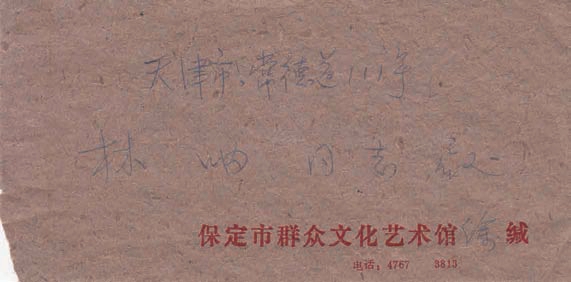 天津市常德道111号
林呐同志启
保定市群众文化艺术馆 徐 缄
电话：4767 3813